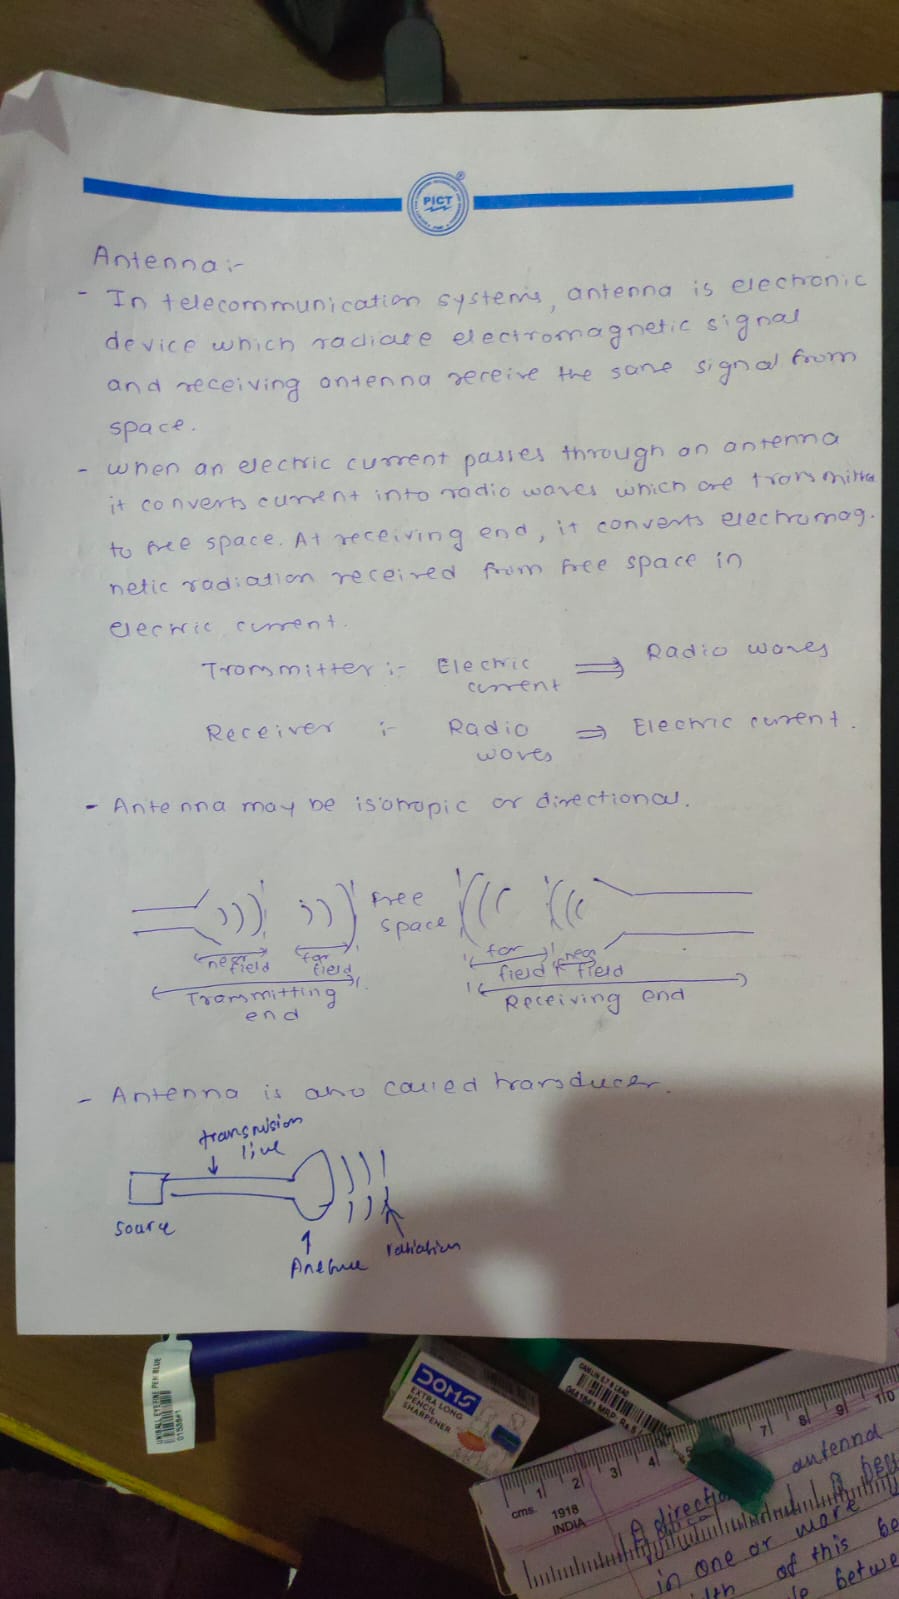 PICT
Antenna :-
- In telecommunication systems, antenna is electronic
device which radiate electromagnetic signal
and receiving antenna receive the same signal from
space.
- when an electric current passes through an antenna
it converts current into radio waves which are transmitte
to free space. At receiving end, it converts electromag.
netic radiation received from free space in
electric current.
Transmitter :- Electric current ⇒ Radio waves
Receiver :- Radio waves ⇒ Electric current.
- Antenna may be isotropic or directional.
Free space
near field
far field
far field
near field
Transmitting end
Receiving end
- Antenna is also called transducer.
transmision line
Source
radiation
UNIBALL EYE FINE PEN BLUE
DOMS
EXTRA LONG
PENCIL
SHARPENER
CAMLIN 0.7 B LEAD
cms. 1 2 3 4 5 7 8 9 10
1918
INDIA
antenna
A direct
in one or more
of this be
betwe